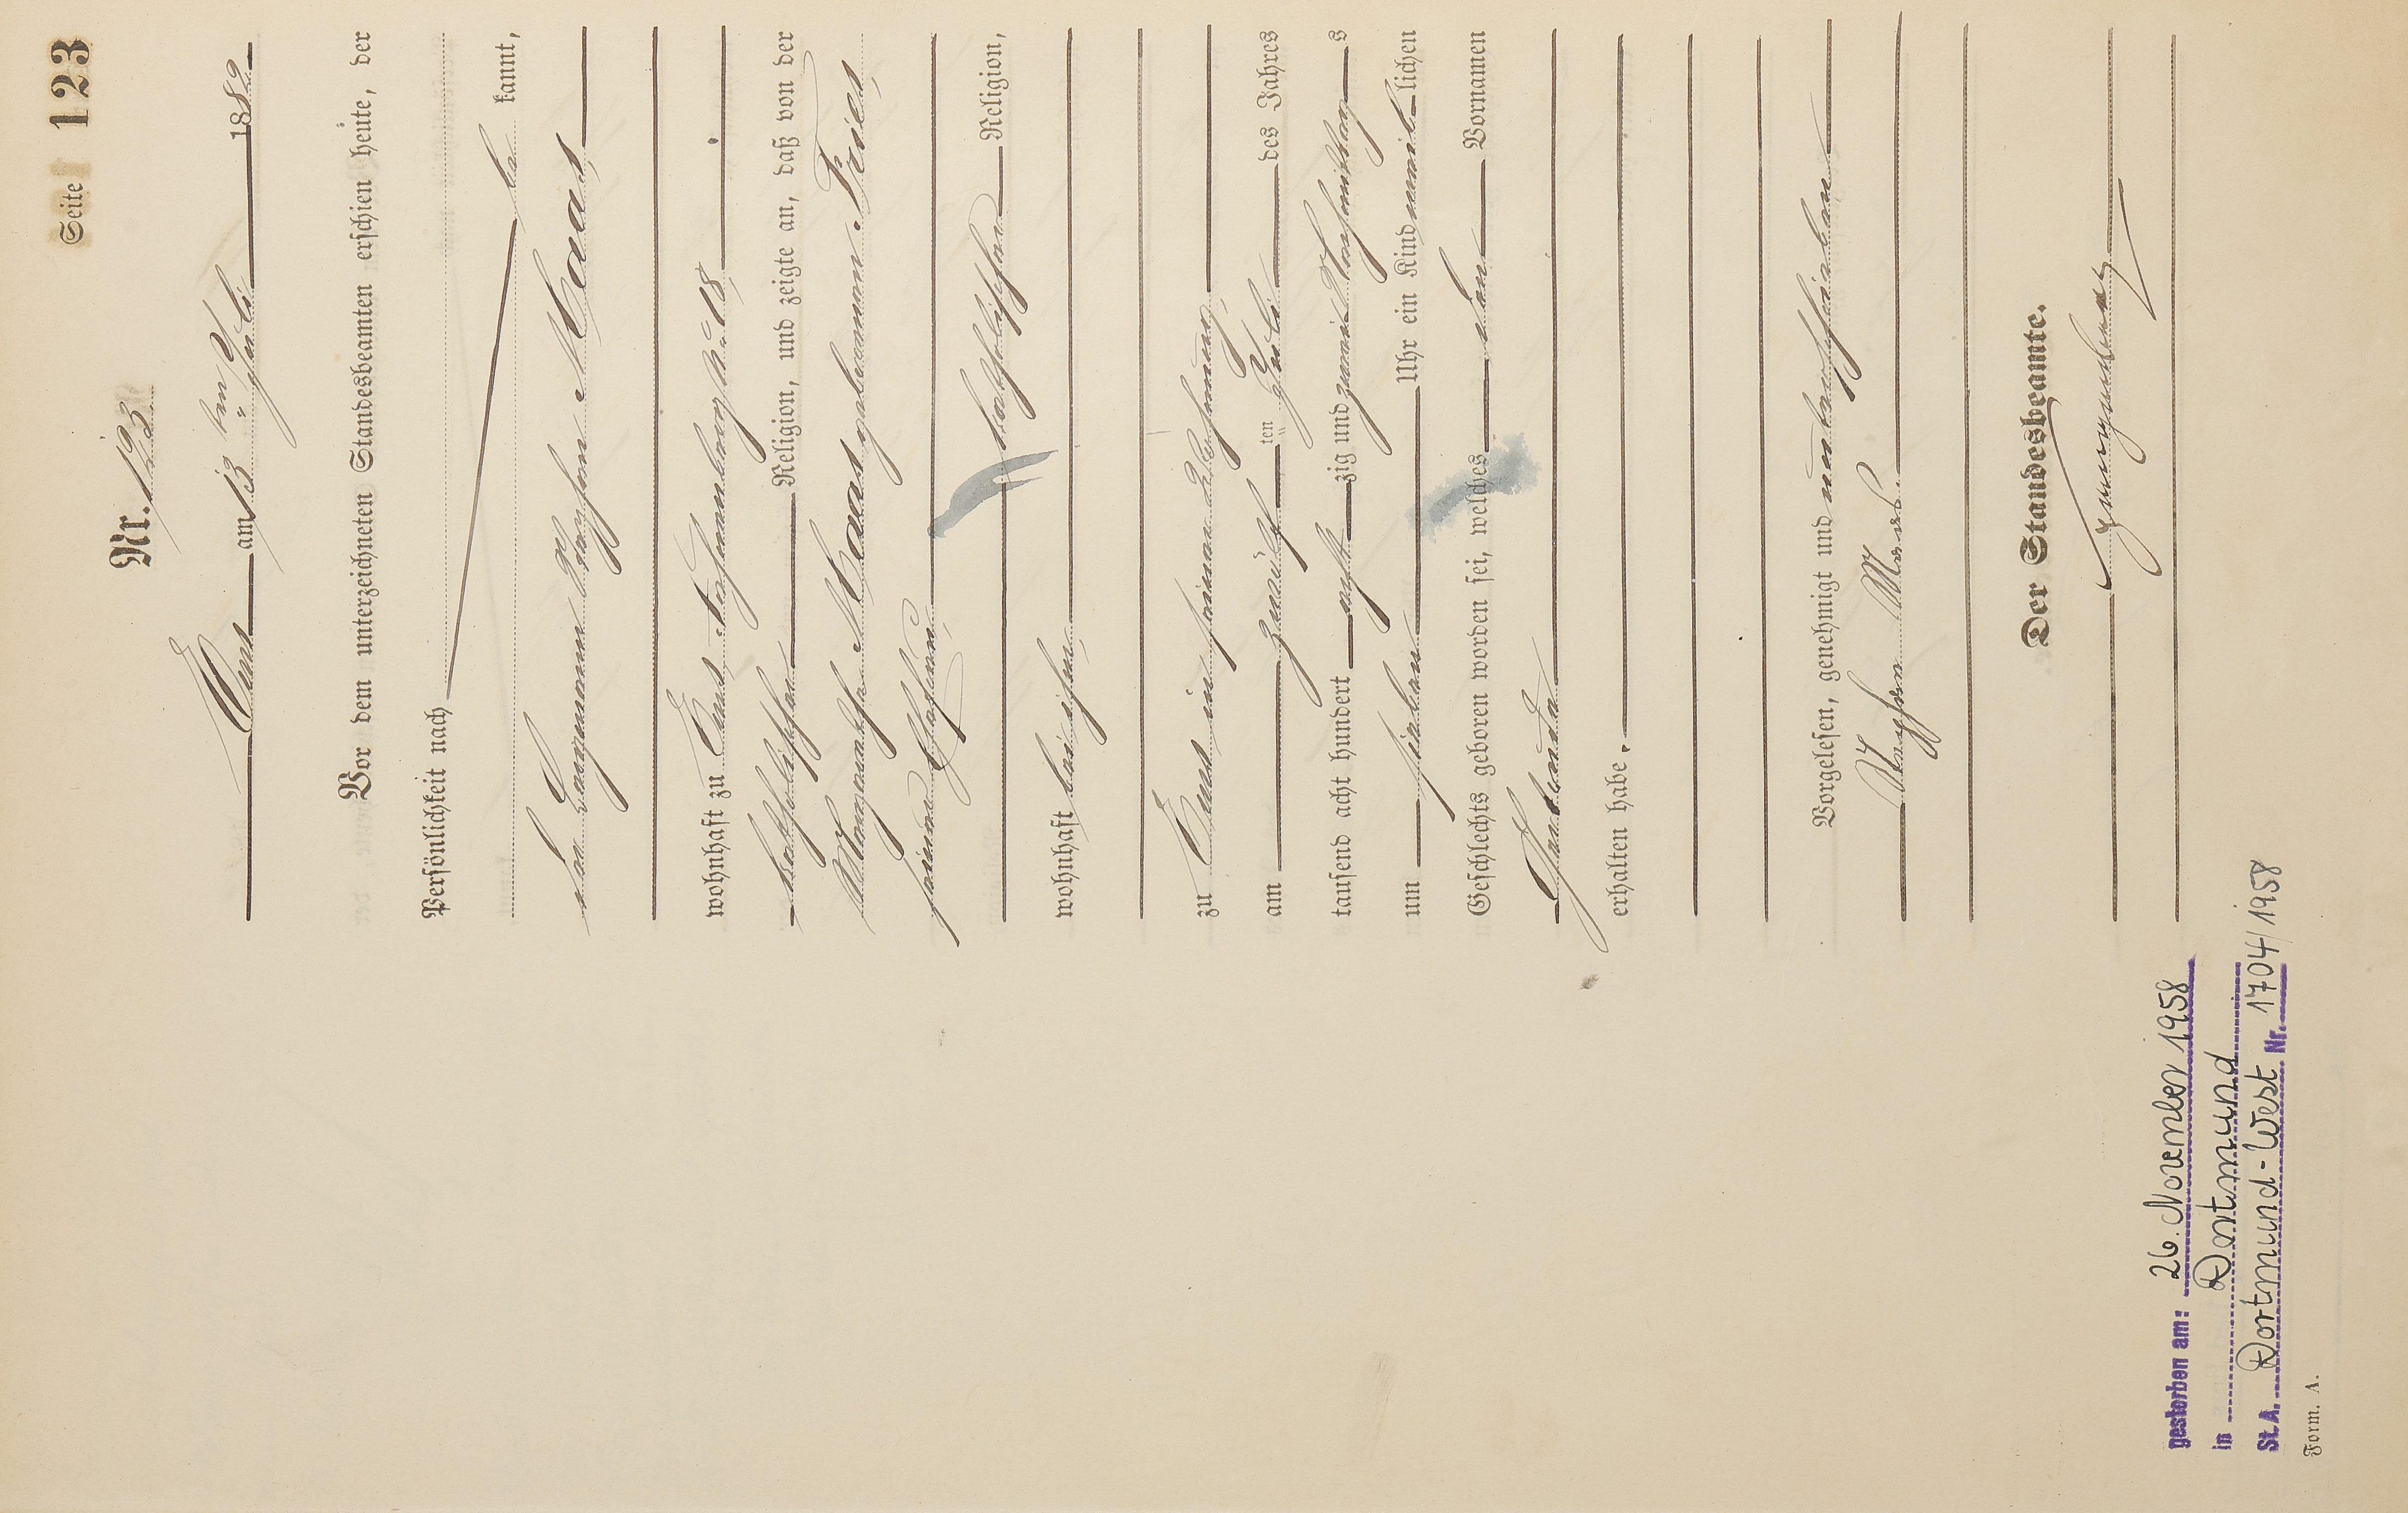 Seite 123
Nr. 123.
Ems am 13 ten Juli 1882
Vor dem unterzeichneten Standesbeamten erschien heute, der
Persönlichkeit nach
be kannt,
der Bergmann Stephan Maas,
wohnhaft zu Ems, N° 18,
katholischer Religion, und zeigte an, daß von der
Margaretha Maas geborenen Fries,
seiner Ehefrau,
katholischer Religion,
wohnhaft bei ihm,
zu Ems in seiner Wohnung,
am zwölf ten Juli des Jahres
tausend acht hundert acht zig und zwei Nachmittags
um sieben Uhr ein Kind weib lichen
Geschlechts geboren worden sei, welches den Vornamen
Gertruda
erhalten habe.
Vorgelesen, genehmigt und unterschrieben
Stephan Maas.
Der Standesbeamte.
gestorben am: 26. November 1958
in Dortmund
St.A. Dortmund-West Nr. 1704/1958
Form. A.